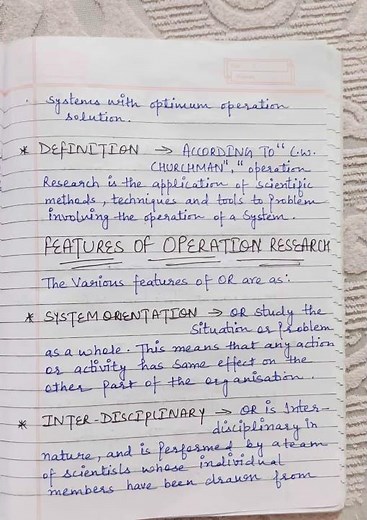 systems with optimum operation
solution.
* DEFINITION → ACCORDING TO " C.W.
CHURCHMAN", "operation
Research is the application of scientific
methods, techniques and tools to Problem
involving the operation of a System.
FEATURES OF OPERATION RESEARCH
The Various features of OR are as:
* SYSTEM ORIENTATION → OR study the
Situation or Problem
as a whole. This means that any action
or activity has same effect on the
other part of the organisation.
* INTER-DISCIPLINARY → OR is Inter-
disciplinary in
nature, and is performed by a team
of scientists whose individual
members have been drawn from